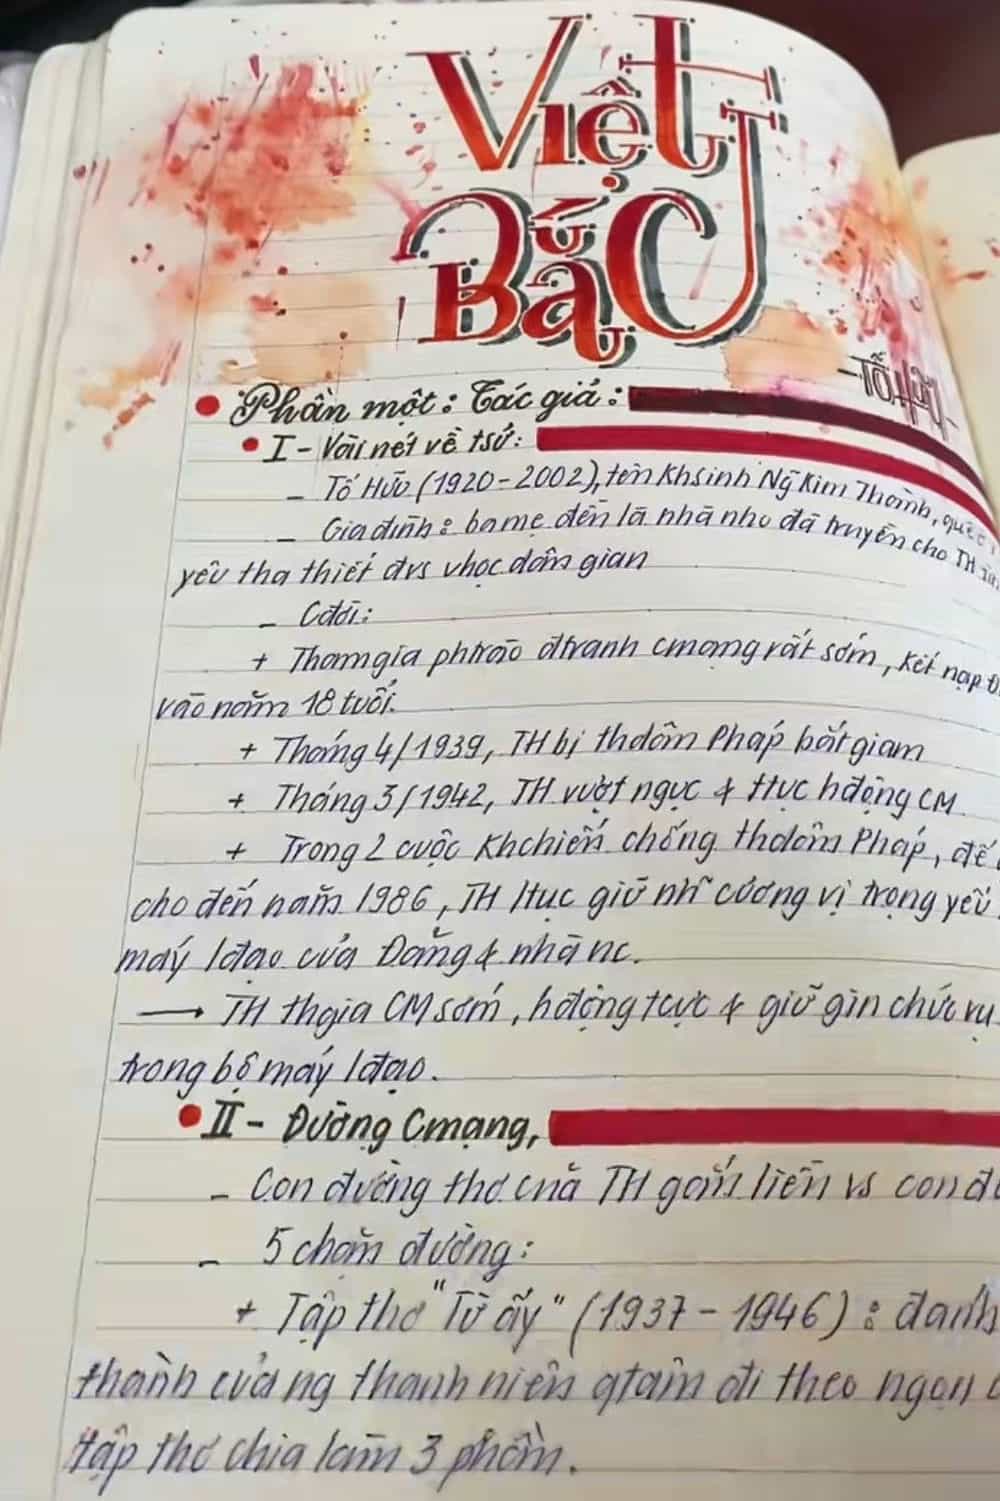 Việt
Bắc
- Tố Hữu -
Phần một: Tác giả:
I - Vài nét về tsử:
- Tố Hữu (1920-2002), tên khsinh Ng~ Kim Thành, quê
- Gia đình: ba mẹ đến là nhà nho đã truyền cho TH
yêu tha thiết đvs vhọc dân gian
- Cđời:
+ Tham gia phtrào đtranh cmạng rất sớm, kết nạp Đ
vào năm 18 tuổi.
+ Tháng 4/1939, TH bị thdân Pháp bắt giam
+ Tháng 3/1942, TH vượt ngục & ttục hđộng CM
+ Trong 2 cuộc khchiến chống thdân Pháp, đế
cho đến năm 1986, TH ttục giữ nh~ cương vị trọng yếu
máy lđạo của Đảng & nhà nc.
→ TH thgia CM sớm, hđộng tcực & giữ gìn chức vụ
trong bộ máy lđạo.
II - Đường Cmạng,
- Con đường thơ của TH gắn liền vs con đ
- 5 chặn đường:
+ Tập thơ "Từ ấy" (1937 - 1946): đánh
thành của ng thanh niên qtâm đi theo ngọn
tập thơ chia làm 3 phần.